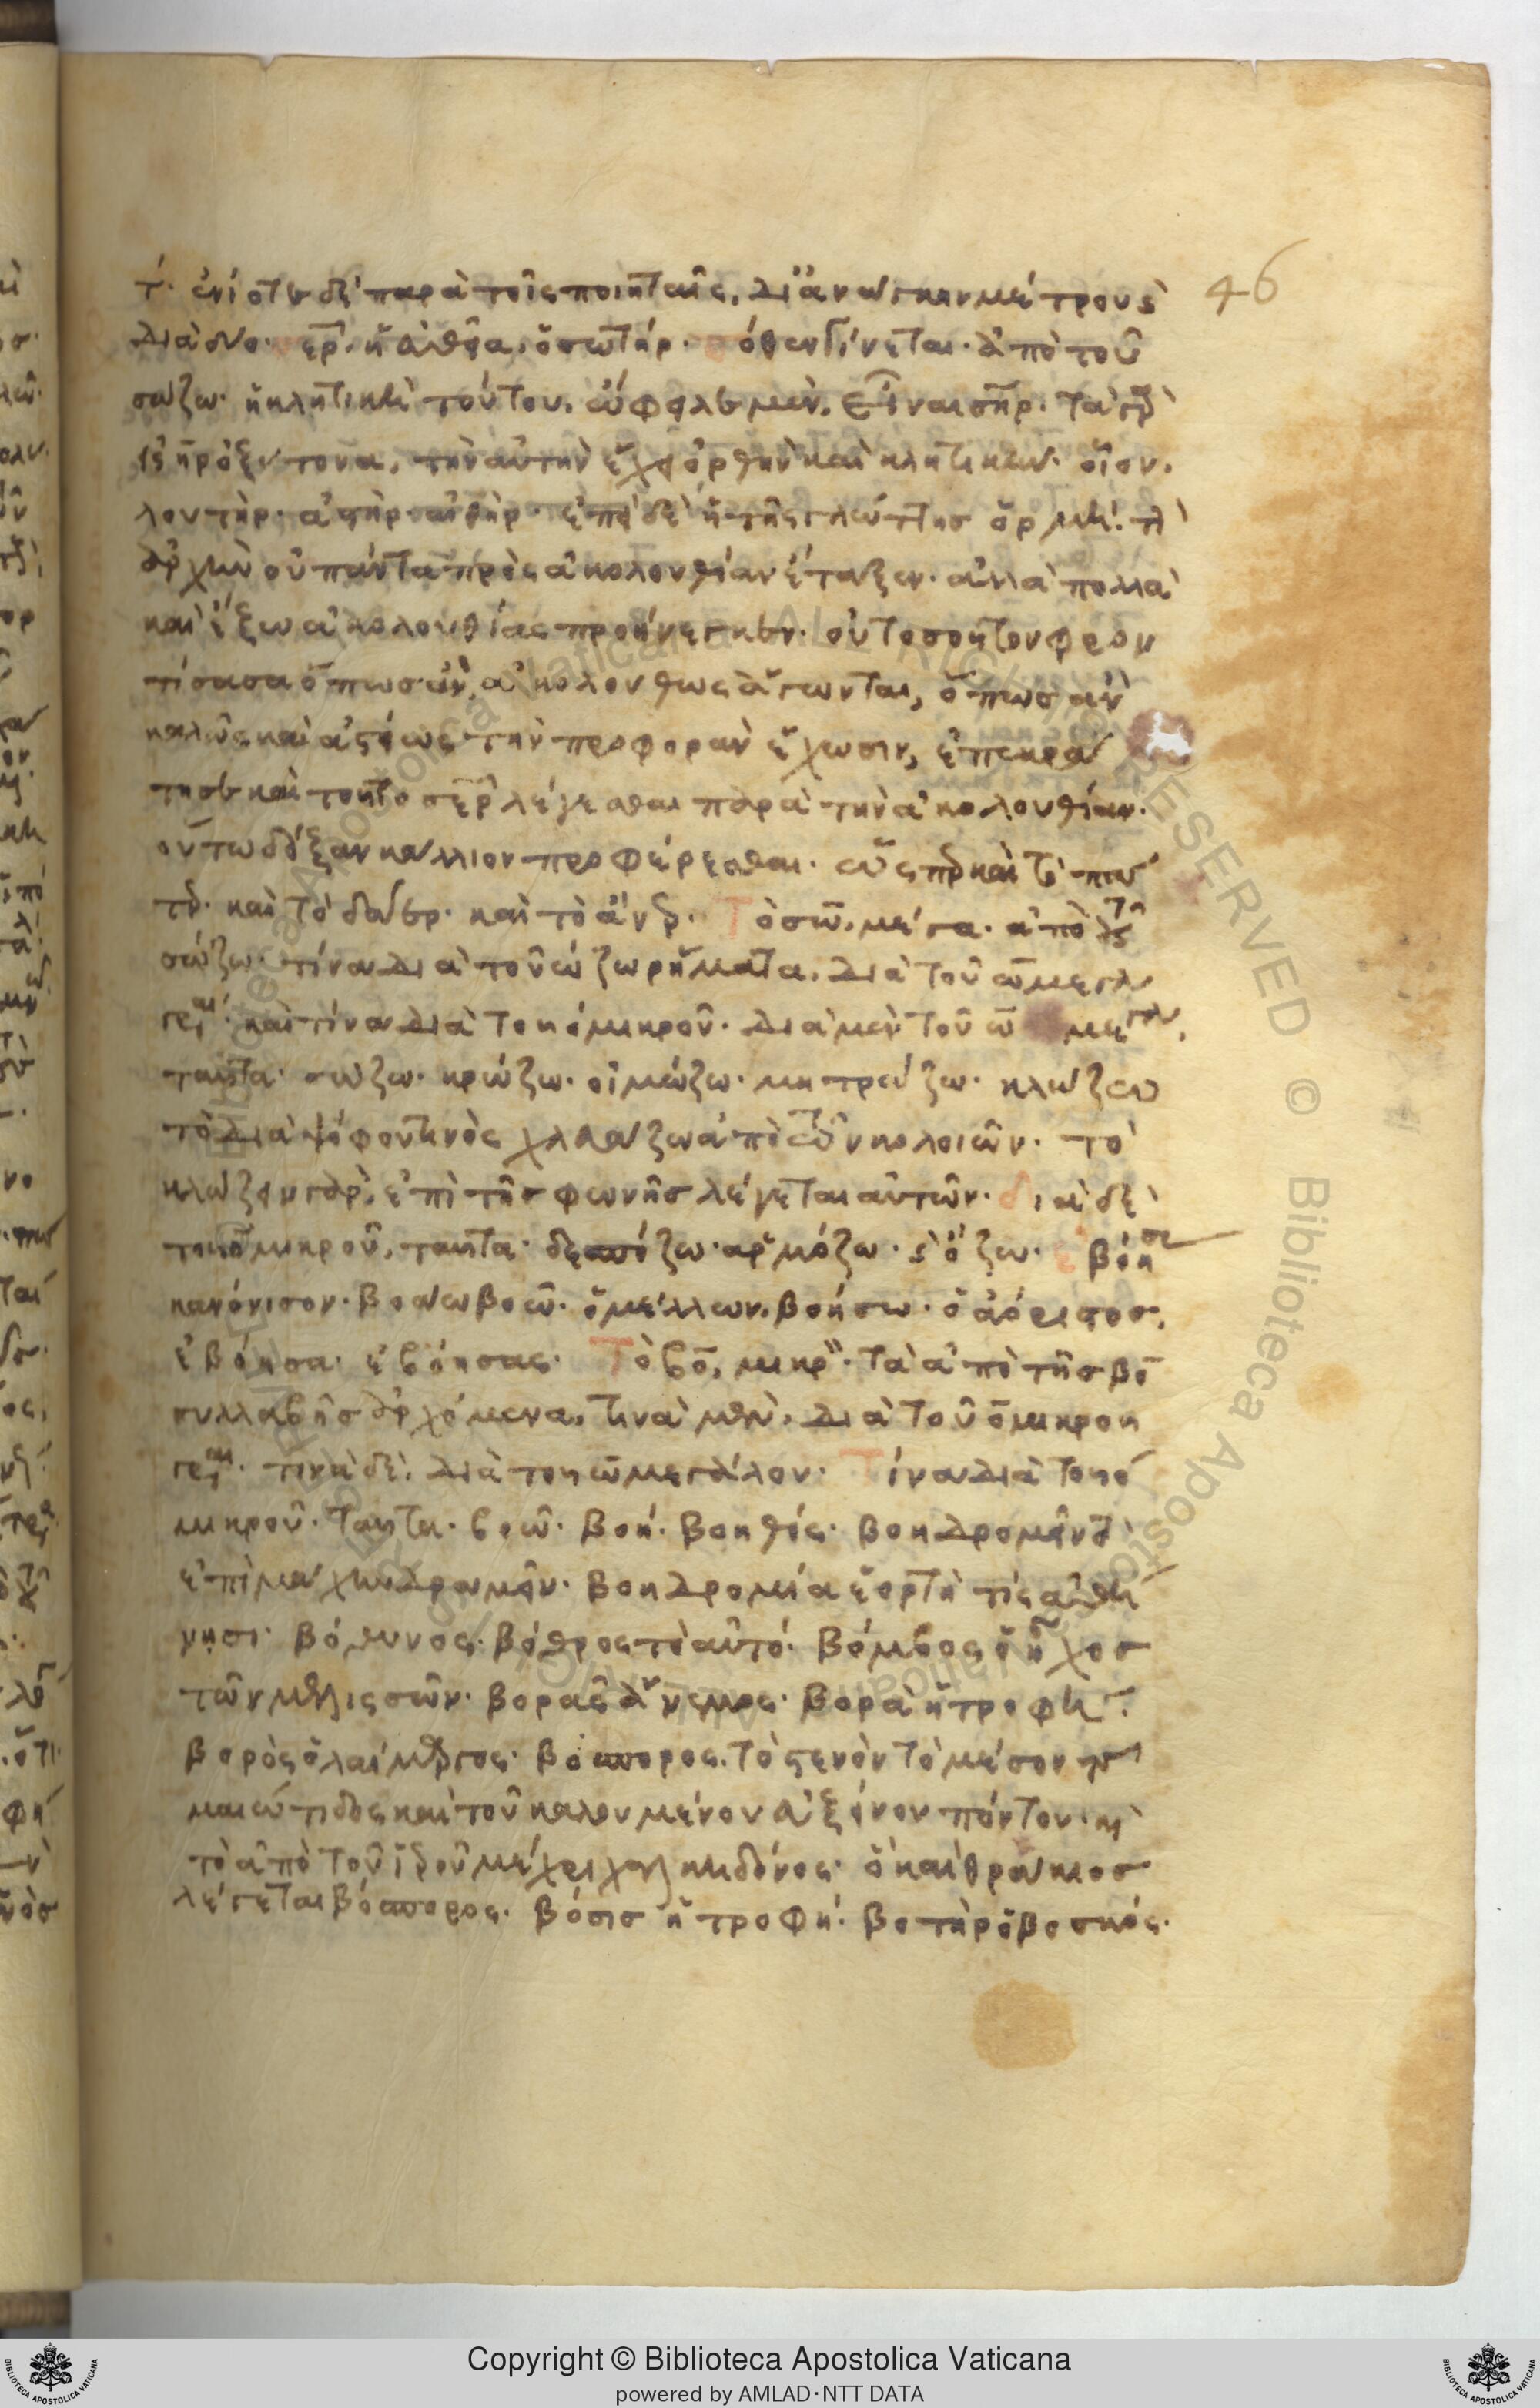 τ. ἐνίοτε δὲ παρὰ τοῖς ποιηταῖς, δι' ἀνάγκην μέτρου
46
διὰ δύο. ὁ σωτήρ. πόθεν γίνεται. ἀπὸ τοῦ
σώζω. ἡ κλητικὴ τούτου, ὤφειλε μὲν, εἶναι σῆρ. τὰ γὰρ
εἰς ηρ ὀξύτονα, τὴν αὐτὴν ἔχει ὀρθὴν καὶ κλητικήν. οἷον,
λουτήρ. ἀστήρ. αἰθήρ. ἐπεὶ δὲ ἡ τῆς γλώττης ὁρμὴ. τὴν
ἀρχὴν οὐ πάντα πρὸς ἀκολουθίαν ἔταξεν. ἀλλὰ πολλὰ
καὶ ἔξω ἀκολουθίας προήνεγκεν. οὐ τοσοῦτον φρον
τίσασα ὅπως ἂν ἀκολούθως ἄγωνται, ὅπως ἂν
καλῶς καὶ ἀστείως τὴν προφορὰν ἔχωσιν, ἐπεκρά
τησε καὶ τοῦτο σῶτερ λέγεσθαι παρὰ τὴν ἀκολουθίαν.
οὕτω δόξαν κάλλιον προφέρεσθαι. ὥσπερ καὶ τὸ πά
τερ. καὶ τὸ δάερ. καὶ τὸ ἄνερ. Τὸ σω, μέγα. ἀπὸ τοῦ
σώζω. τίνα διὰ τοῦ ώζω ῥήματα, διὰ τοῦ ω μεγάλου
γράφεται. καὶ τίνα διὰ τοῦ ο μικροῦ. διὰ μὲν τοῦ ω μεγάλου,
ταῦτα. σώζω. κρώζω. οἰμώζω. μητρώζω. κλώζω
τὸ διὰ ψόφου τινὸς χλευάζω ἀπὸ τῶν κολοιῶν. τὸ
κλώζειν γὰρ, ἐπὶ τῆς φωνῆς λέγεται αὐτῶν. διὰ δὲ
τοῦ ο μικροῦ, ταῦτα. δεσπόζω. ἁρμόζω. ὄζω. ἐβόησα
κανόνισον. βοάω βοῶ. ὁ μέλλων, βοήσω. ὁ ἀόριστος,
ἐβόησα. ἐβόησας. Τὸ βο, μικρόν. τὰ ἀπὸ τῆς βο
συλλαβῆς ἀρχόμενα, τινὰ μὲν, διὰ τοῦ ο μικροῦ
γράφεται. τινὰ δὲ, διὰ τοῦ ω μεγάλου. Τίνα διὰ τοῦ ο
μικροῦ. ταῦτα. βοῶ. βοή. βοηθός. βοηδρομεῖν τὸ
ἐπὶ μάχην δραμεῖν. βοηδρομία ἑορτή τις ἀθή
νησι. βόθυνος. βόθρος τὸ αὐτό. βόμβος ὁ ἦχος
τῶν μελισσῶν. βορᾶς ἄνεμος. βορὰ ἡ τροφή.
βορὸς ὁ λαίμαργος. βόσπορος, τὸ στενὸν τὸ μέσον τῆς
μαιώτιδος καὶ τοῦ καλουμένου ἀξένου πόντου. καὶ
τὸ ἀπὸ τοῦ ἱεροῦ μέχρι χαλκηδόνος. ὁ καὶ θράκιος
λέγεται βόσπορος. βόσις ἡ τροφή. βοτὴρ ὁ βοσκός.
Copyright © Biblioteca Apostolica Vaticana
powered by AMLAD·NTT DATA